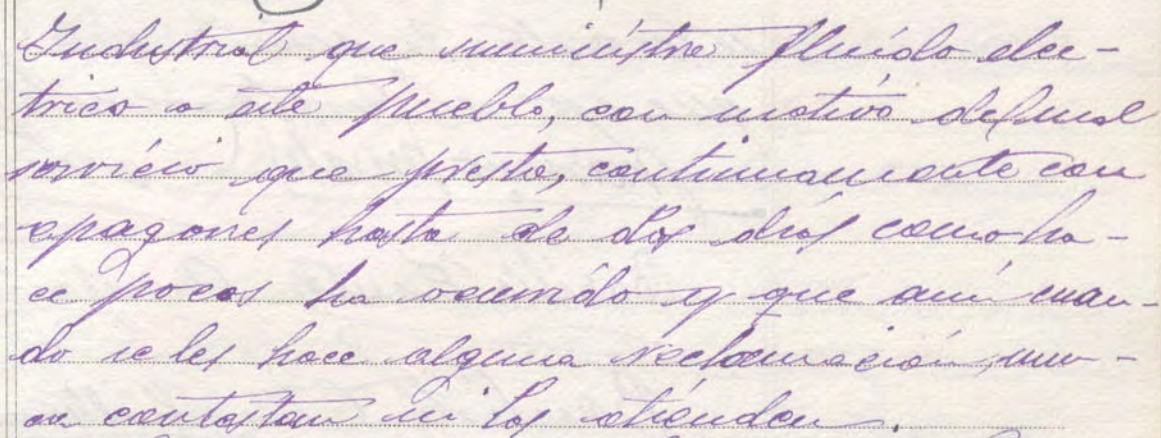 Industrial que suministra fluido elec-
trico a este pueblo, con motivo del mal
servicio que presta, continuamente con
apagones hasta de dos dias como ha-
ce pocos ha ocurrido y que aun cuan-
do se les hace alguna reclamación, nun-
ca contestan ni los atienden.